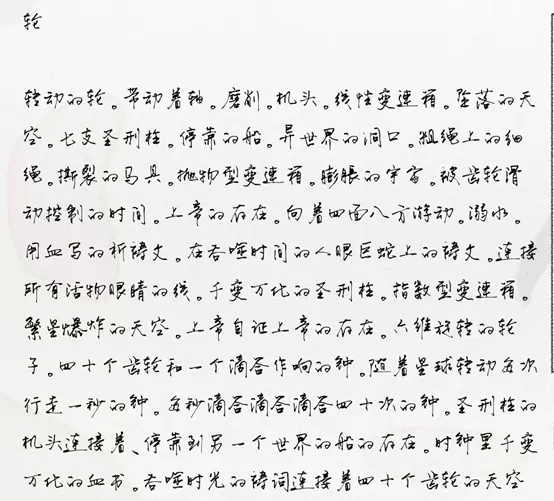 轮
转动的轮。带动着轴。磨削。机头。线性变速箱。坠落的天
空。七支圣刑柱。停靠的船。异世界的洞口。粗绳上的细
绳。撕裂的马具。抛物型变速箱。膨胀的宇宙。被齿轮滑
动控制的时间。上帝的存在。向着四面八方游动。溺水。
用血写的祈祷文。在吞噬时间的人眼巨蛇上的祷文。连接
所有活物眼睛的线。千变万化的圣刑柱。指数型变速箱。
繁星爆炸的天空。上帝自证上帝的存在。六维旋转的轮
子。四十个齿轮和一个滴答作响的钟。随着星球转动每次
行走一秒的钟。每秒滴答滴答滴答四十次的钟。圣刑柱的
机头连接着、停靠到另一个世界的船的存在。时钟里千变
万化的血书。吞噬时光的祷词连接着四十个齿轮的天空